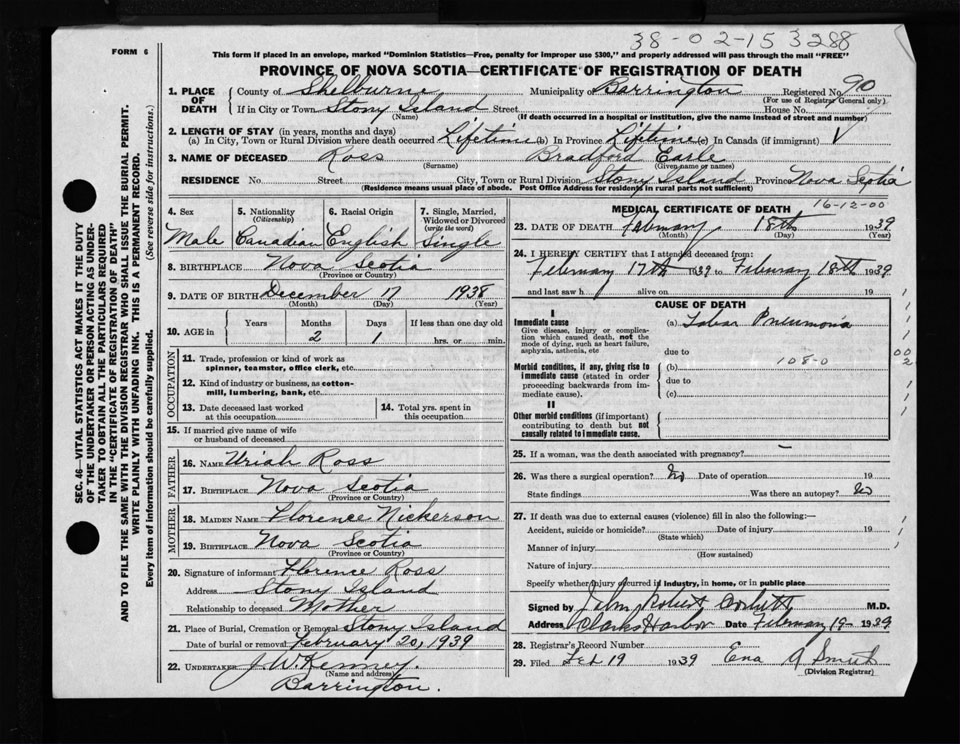 38-02-15 3288
FORM 6
This form if placed in an envelope, marked "Dominion Statistics—Free, penalty for improper use $300," and properly addressed will pass through the mail "FREE"
PROVINCE OF NOVA SCOTIA—CERTIFICATE OF REGISTRATION OF DEATH
1. PLACE OF DEATH County of Shelburne Municipality of Barrington Registered No 90
(For use of Registrar General only)
If in City or Town Stony Island Street House No
(Name) (If death occurred in a hospital or institution, give the name instead of street and number)
2. LENGTH OF STAY (in years, months and days)
(a) In City, Town or Rural Division where death occurred Lifetime (b) In Province Lifetime (c) In Canada (if immigrant)
3. NAME OF DECEASED Ross Bradford Earle
(Surname) (Given name or names)
RESIDENCE No. Street City, Town or Rural Division Stony Island Province Nova Scotia
(Residence means usual place of abode. Post Office Address for residents in rural parts not sufficient)
4. Sex 5. Nationality (Citizenship) 6. Racial Origin 7. Single, Married, Widowed or Divorced (write the word)
Male Canadian English Single
8. BIRTHPLACE Nova Scotia
(Province or Country)
9. DATE OF BIRTH December 17 1938
(Month) (Day) (Year)
10. AGE in Years Months Days If less than one day old
2 1 hrs. or min.
OCCUPATION
11. Trade, profession or kind of work as spinner, teamster, office clerk, etc.
12. Kind of industry or business, as cotton-mill, lumbering, bank, etc.
13. Date deceased last worked at this occupation
14. Total yrs. spent in this occupation
15. If married give name of wife or husband of deceased
FATHER
16. NAME Uriah Ross
17. BIRTHPLACE Nova Scotia
(Province or Country)
MOTHER
18. MAIDEN NAME Florence Nickerson
19. BIRTHPLACE Nova Scotia
(Province or Country)
20. Signature of informant Florence Ross
Address Stony Island
Relationship to deceased Mother
21. Place of Burial, Cremation or Removal Stony Island
Date of burial or removal February 20, 1939
22. UNDERTAKER J. W. Kenney.
(Name and address)
Barrington.
MEDICAL CERTIFICATE OF DEATH 16-12-00
23. DATE OF DEATH February 18th 1939
(Month) (Day) (Year)
24. I HEREBY CERTIFY that I attended deceased from:
February 17th 1939 to February 18th 1939
and last saw h alive on 19
CAUSE OF DEATH
I
Immediate cause
Give disease, injury or complication which caused death, not the mode of dying, such as heart failure, asphyxia, asthenia, etc
(a) Lobar Pneumonia
due to
108-0
Morbid conditions, if any, giving rise to immediate cause (stated in order proceeding backwards from immediate cause).
(b)
due to
(c)
II
Other morbid conditions (if important) contributing to death but not causally related to immediate cause.
25. If a woman, was the death associated with pregnancy? –
26. Was there a surgical operation? No Date of operation 19
State findings Was there an autopsy? No
27. If death was due to external causes (violence) fill in also the following:—
Accident, suicide or homicide? Date of injury 19
(State which)
Manner of injury
(How sustained)
Nature of injury
Specify whether injury occurred in industry, in home, or in public place
Signed by John Robert Corbett M.D.
Address Clarks Harbor Date February 19- 1939
28. Registrar's Record Number
29. Filed Feb 19 1939 Ena A Smith
(Division Registrar)
SEC. 46—VITAL STATISTICS ACT MAKES IT THE DUTY
OF THE UNDERTAKER OR PERSON ACTING AS UNDER-
TAKER TO OBTAIN ALL THE PARTICULARS REQUIRED
IN THE "CERTIFICATE OF REGISTRATION OF DEATH"
AND TO FILE THE SAME WITH THE DIVISION REGISTRAR WHO SHALL ISSUE THE BURIAL PERMIT.
WRITE PLAINLY WITH UNFADING INK. THIS IS A PERMANENT RECORD.
Every item of information should be carefully supplied. (See reverse side for instructions.)